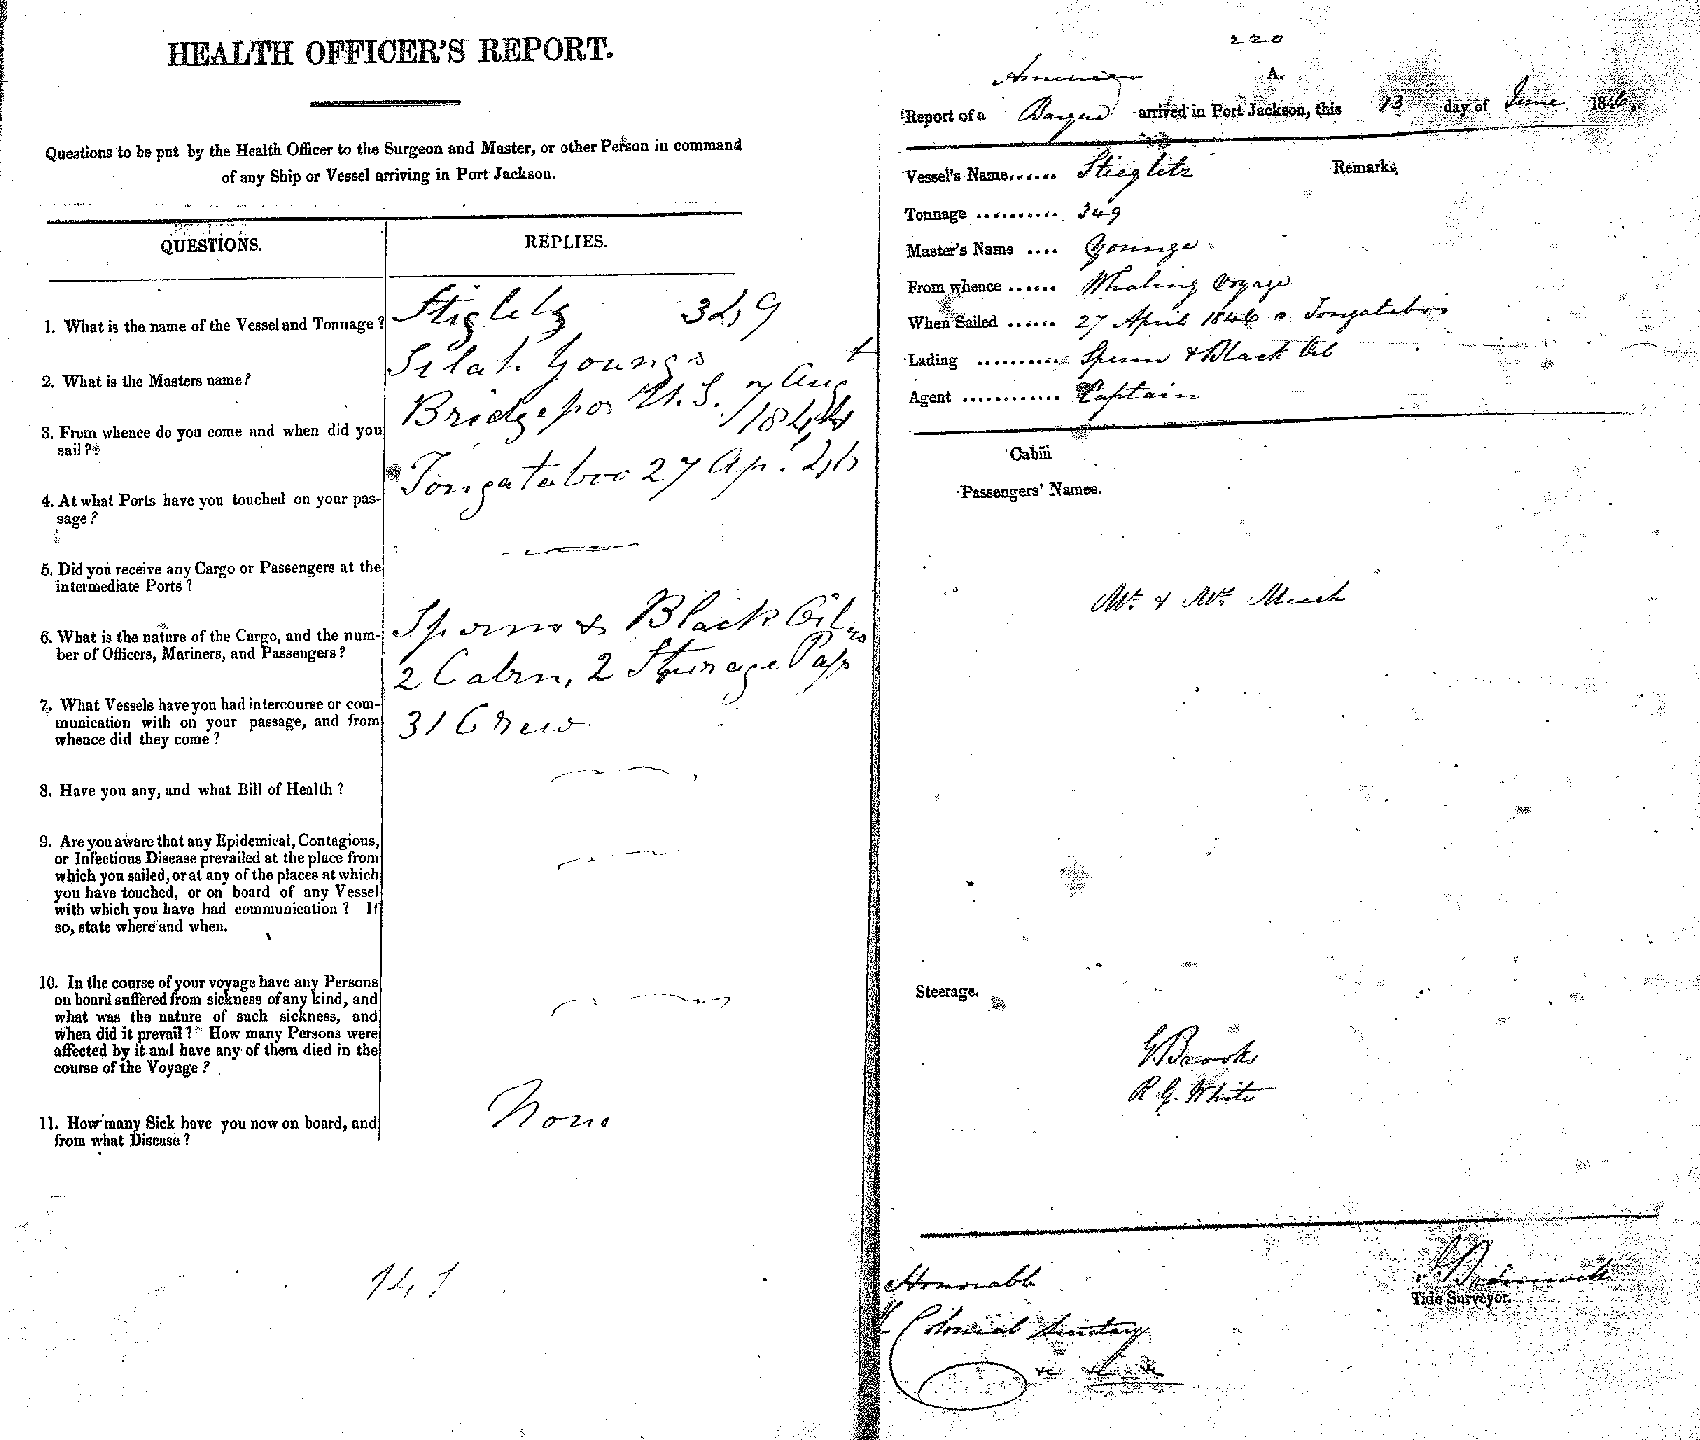 HEALTH OFFICER'S REPORT.
Questions to be put by the Health Officer to the Surgeon and Master, or other Person in command
of any Ship or Vessel arriving in Port Jackson.
QUESTIONS.
REPLIES.
1. What is the name of the Vessel and Tonnage?
Stiglitz 349
2. What is the Masters name?
Selah Youngs
3. From whence do you come and when did you
sail?
Bridgepor U.S. 7 Aug
1844
4. At what Ports have you touched on your pas-
sage?
Tongataboo 27 Ap. 46
5. Did you receive any Cargo or Passengers at the
intermediate Ports?
6. What is the nature of the Cargo, and the num-
ber of Officers, Mariners, and Passengers?
Sperm & Black Oil
2 Cabin, 2 Steerage Pass
31 Crew
7. What Vessels have you had intercourse or com-
munication with on your passage, and from
whence did they come?
8. Have you any, and what Bill of Health?
9. Are you aware that any Epidemical, Contagious,
or Infectious Disease prevailed at the place from
which you sailed, or at any of the places at which
you have touched, or on board of any Vessel
with which you have had communication? If
so, state where and when.
10. In the course of your voyage have any Persons
on board suffered from sickness of any kind, and
what was the nature of such sickness, and
when did it prevail? How many Persons were
affected by it and have any of them died in the
course of the Voyage?
11. How many Sick have you now on board, and
from what Disease?
None
220
American
A.
Report of a Barque arrived in Port Jackson, this 13 day of June 1846.
Vessel's Name...... Stieglitz
Remarks
Tonnage .......... 349
Master's Name .... Younge
From whence ...... Whaling Voyage
When Sailed ...... 27 April 1846 Tongataboo
Lading .......... Sperm & Black Oil
Agent ............ Captain
Cabin
Passengers' Names.
Mr. & Mrs.
Steerage.
G Brook
R. G. White
Tide Surveyor.
Honorable
Colonial Secretary